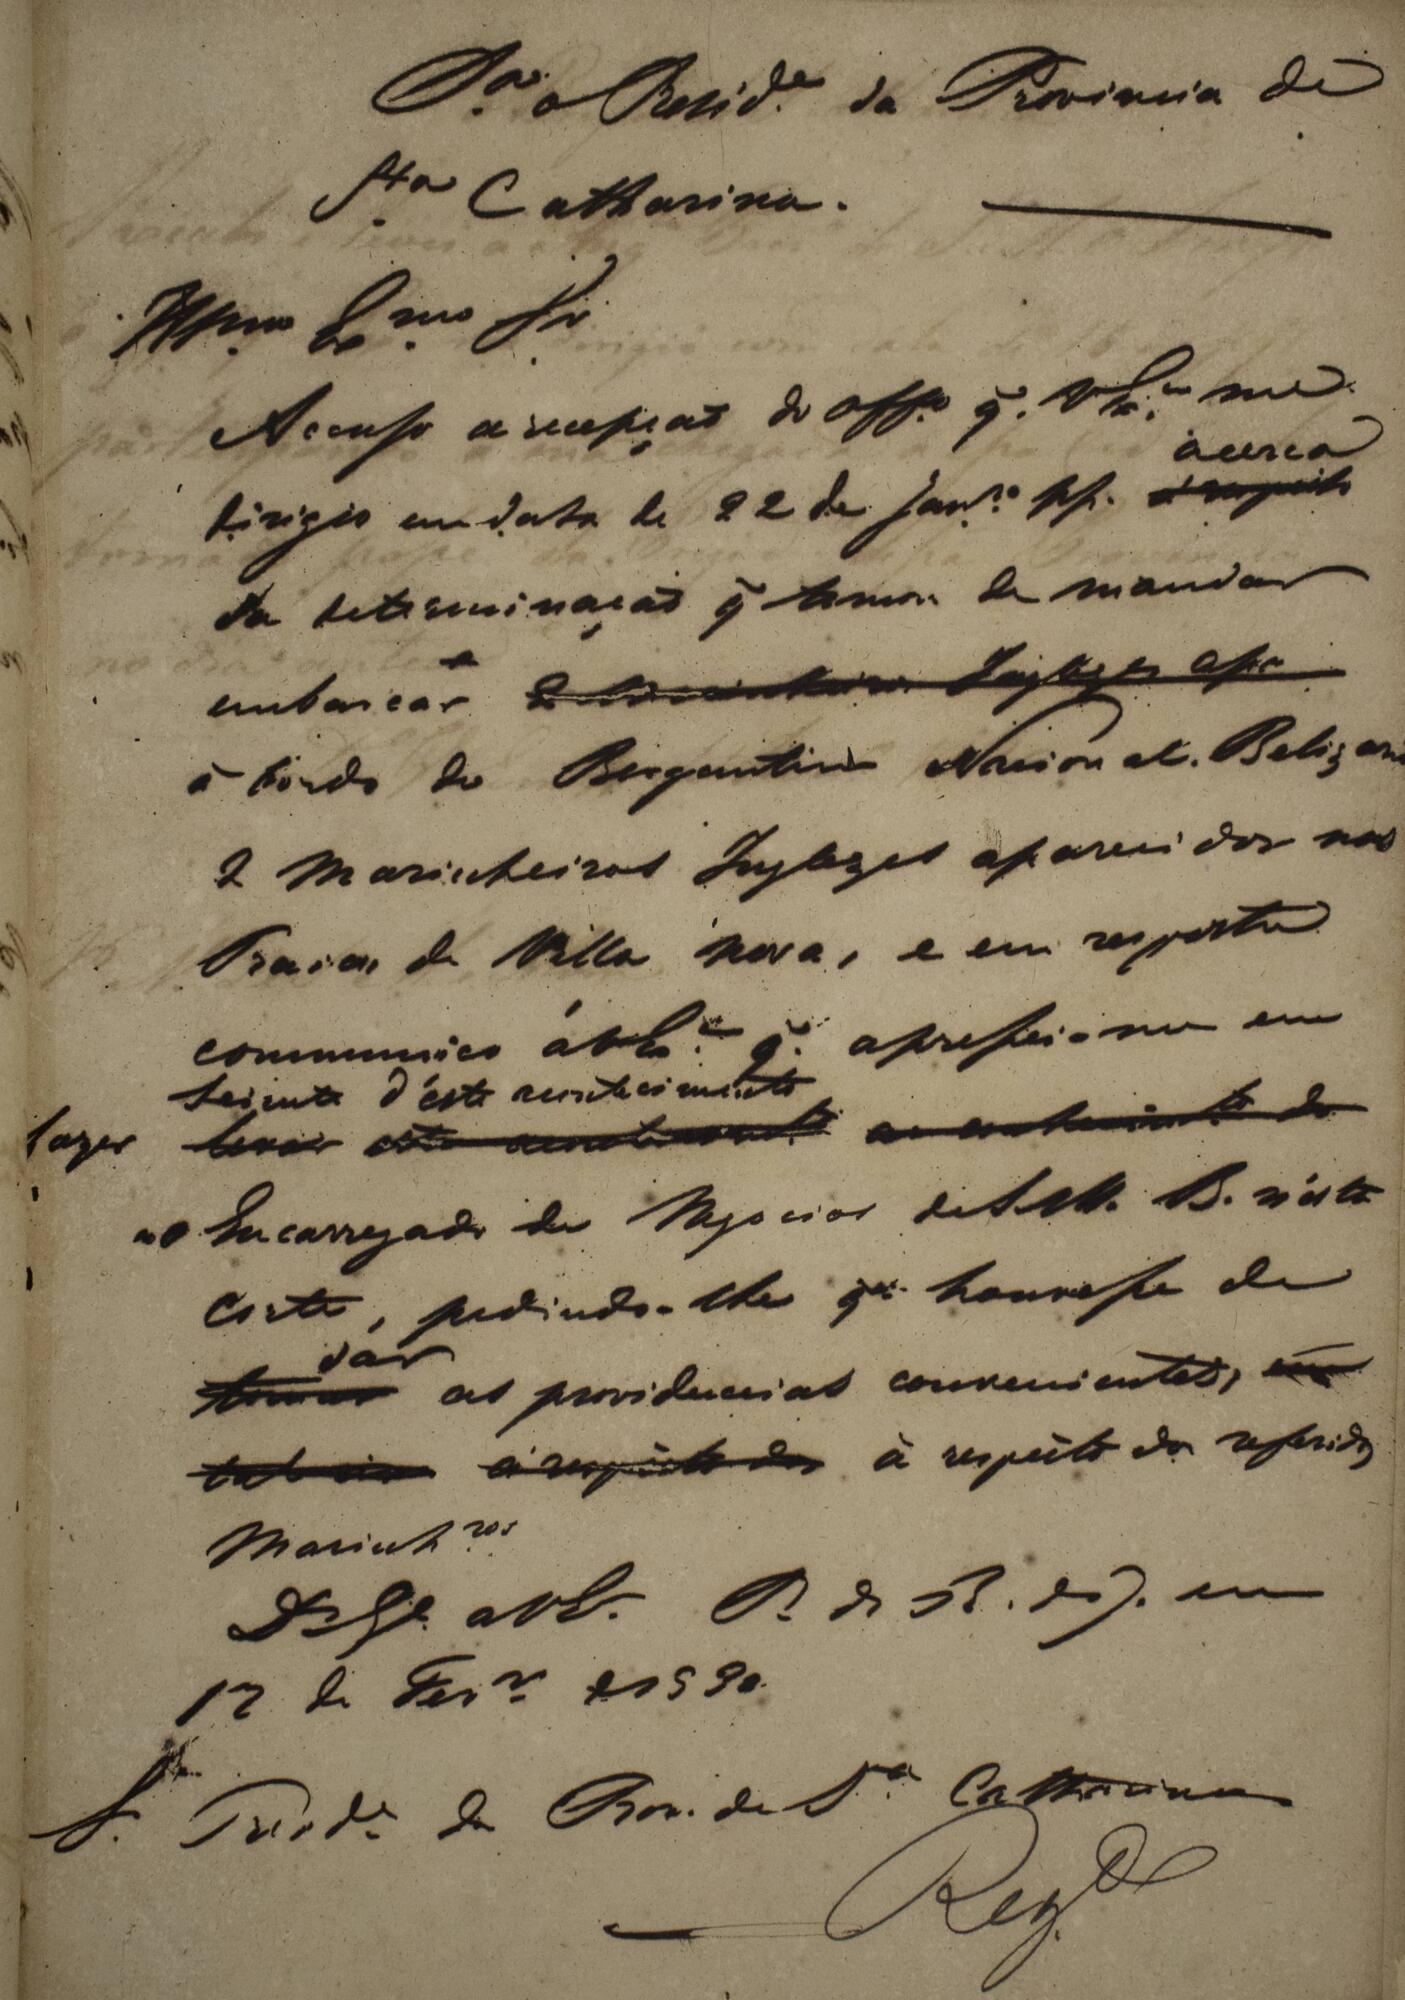 Pa. o Presid.e da Provincia de
Sta Catharina.
Illmo Exmo Sr
Accuso a recepção do offo q. V Ex.a me
acerca
dirigio em data de 22 de Janro pp. a respeito
da determinação q̃ tomou de mandar
embarcar 2 Marinheiros Inglezes apa
á bordo do Bergantim Nacional. Belizario
2 Marinheiros Inglezes aparecidos nas
Praias de Villa nova, e em resposta
communico á V Ex.a q. apressei-me em
sciente d'este acontecimento
fazer levar este acontecimento ao conhecimento do
ao Encarregado de Negocios de S. M. B. n'esta
Corte, pedindo-lhe qe houvesse de
dar
tomar as providencias convenientes, em
a respeito dos à respeito dos referidos
Marinhros
Ds Ge a V E. P. do R. de J. em
17 de Fevro de 1830
Sr. Presde da Prov. de Sta Catharina
Regda